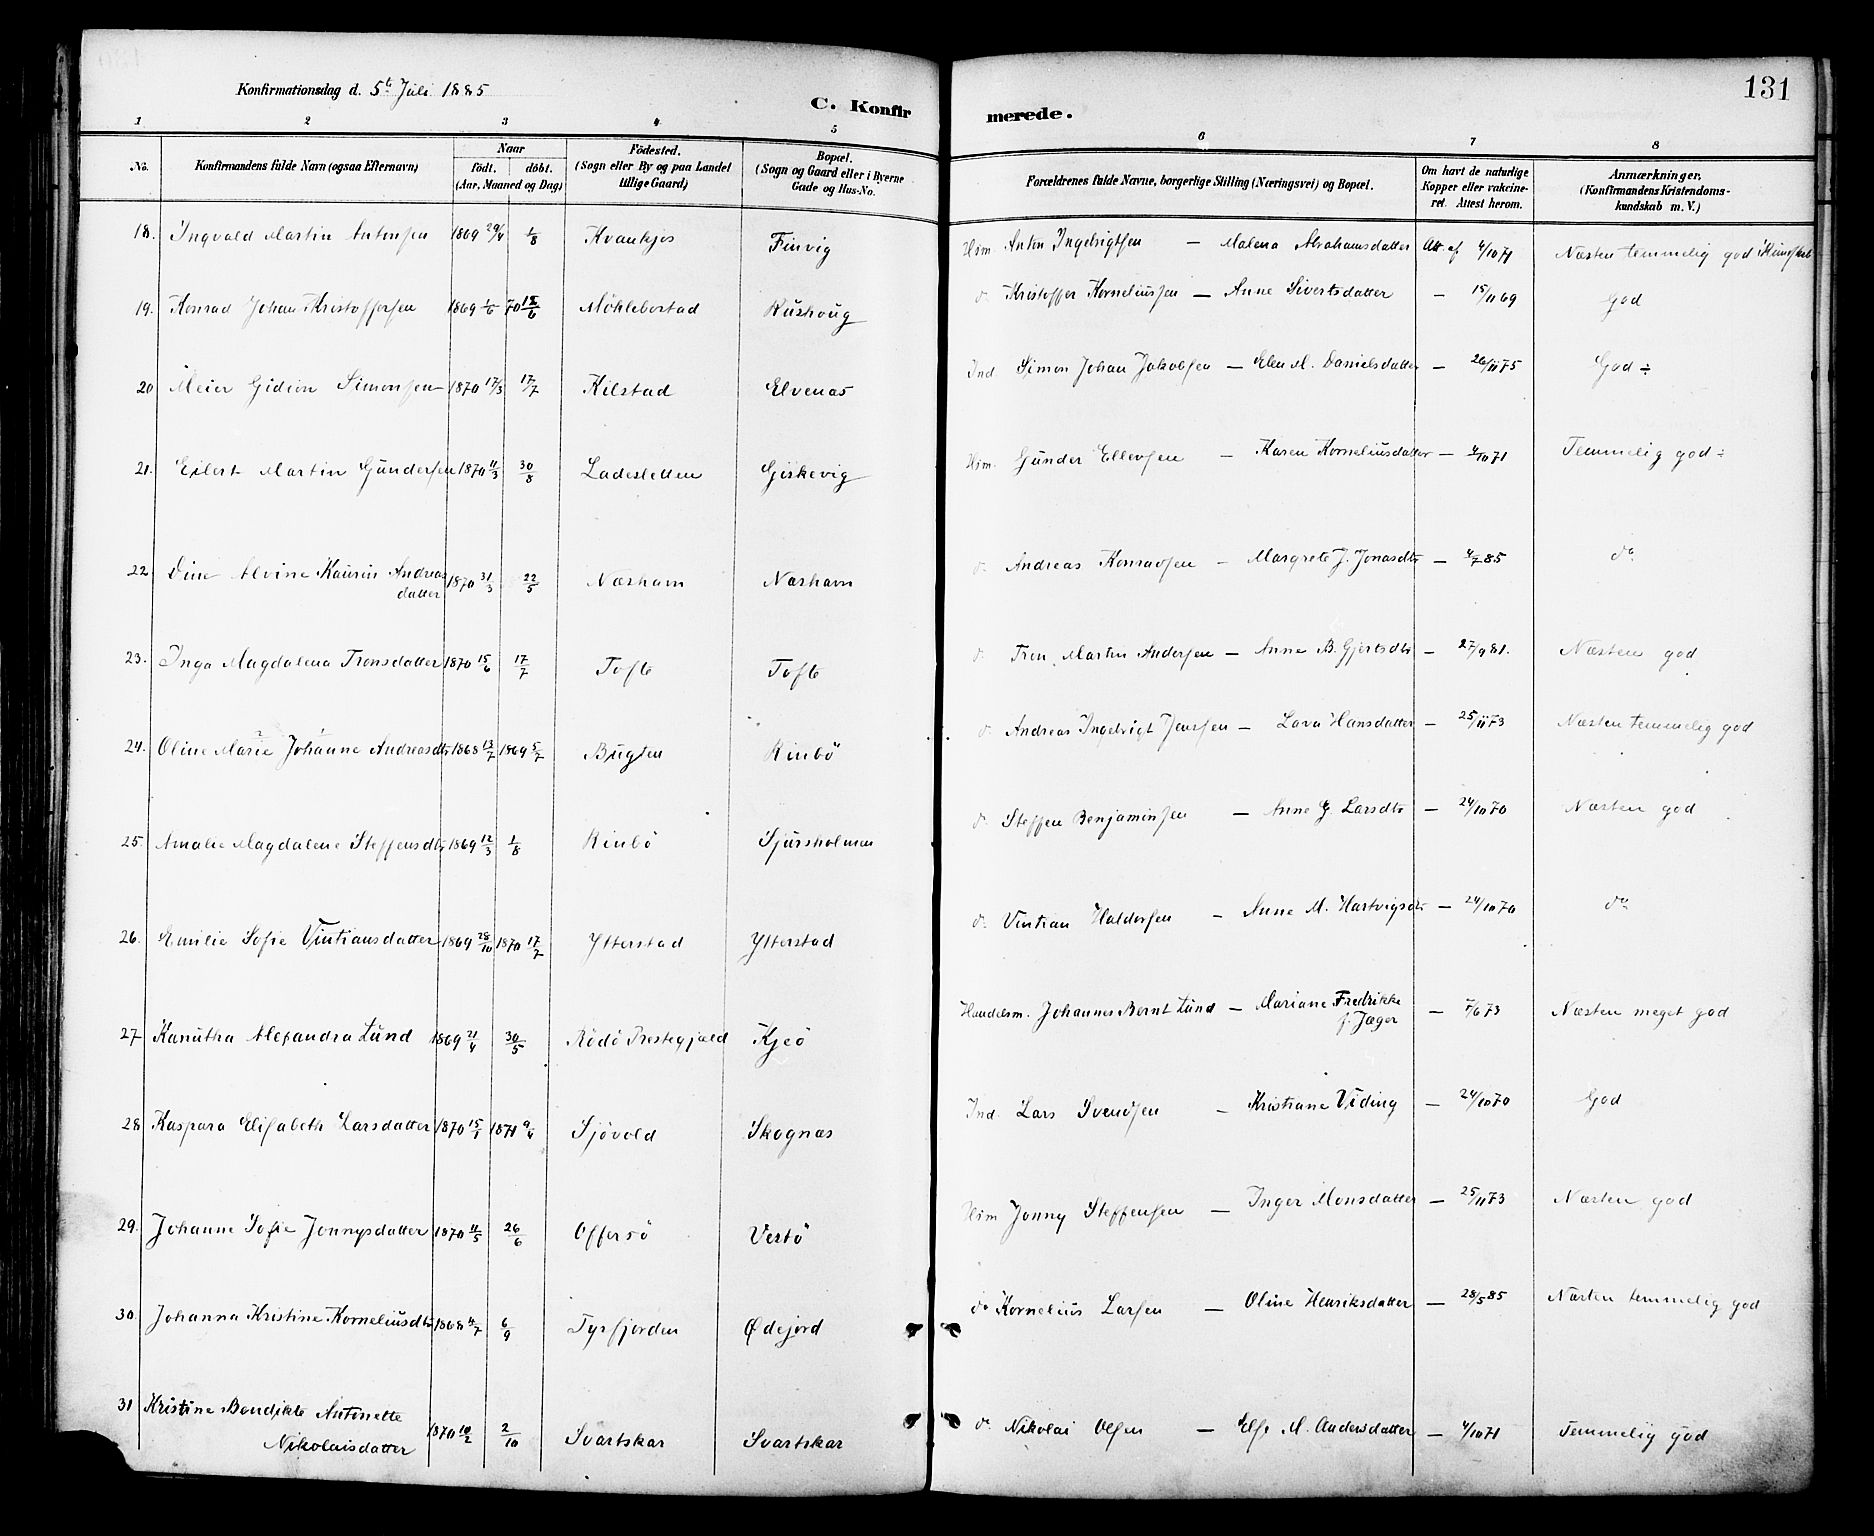 Konfirmationsdag d. 5t Juli 1885
C. Konfir
merede.
131
1 2 3 4 5 6 7 8
No.
Konfirmandens fulde Navn (ogsaa Efternavn)
Naar
födt. döbt.
(Aar, Maaned og Dag)
Födested.
(Sogn eller By og paa Landet
tillige Gaard)
Bopæl.
(Sogn og Gaard eller i Byerne
Gade og Hus-No.
Forældrenes fulde Navne, borgerlige Stilling (Næringsvei) og Bopæl.
Om havt de naturlige
Kopper eller vakcine-
ret. Attest herom.
Anmærkninger.
(Konfirmandens Kristendoms-
kundskab m. V.)
18. Ingvald Martin Antonsen 1869 29/4 1/8 Kvankjos Finvig Hsm. Anton Ingebrigtsen — Malena Abrahamsdatter Att. af 4/10 71 Næsten temmelig god Kundskab
19. Konrad Johan Kristoffersen 1869 1/6 70 12/6 Möklebostad Rushaug do Kristoffer Korneliussen — Anne Sivertsdatter — 15/11 69 God
20 Meier Gidion Simonsen 1870 17/3 17/7 Kilstad Elvenæs Ind. Simon Johan Jakobsen — Elen M. Danielsdatter — 26/11 75 God ÷
21. Eilert Martin Gundersen 1870 11/3 30/8 Ladesletten Gjiskevig Hsm. Gunder Ellevsen — Karen Korneliusdatter — 4/10 71 Temmelig god ÷
22. Dine Alvine Kaurin Andreas
datter 1870 31/3 22/5 Næshavn Næshavn do Andreas Konradsen — Margrete J. Jonasdtr — 4/7 85 do
23. Inga Magdalena Tronsdatter 1870 15/6 17/7 Tofte Tofte do Tron Martin Andersen — Anne B. Gjertsdtr — 27/9 81. Næsten god
24. Oline Marie Johanne Andreasdtr 1868 13/7 1869 5/7 Bugten Rinbö do Andreas Ingebrigt Jensen — Lava Hansdatter — 25/11 73 Næsten temmelig god
25. Amalie Magdalene Steffensdtr 1869 12/3 1/8 Rinbö Sjursholmen do Steffen Benjaminsen — Anne G. Larsdtr — 24/10 70 Næsten god
26. Emilie Sofie Vintiansdatter 1869 28/10 1870 17/7 Ytterstad Ytterstad do Vintian Haldorsen — Anne M. Hartvigsdtr — 24/10 70 do
27 Kanutha Alexandra Lund 1869 21/4 30/5 Rödö Prestegjæld Kjeö Handelsm. Johannes Bernt Lund — Mariane Fredrikke
f. Jæger — 7/6 73 Næsten meget god
28 Kaspara Elisabeth Larsdatter 1870 15/1 1871 9/4 Sjövold Skognæs Ind. Lars Svendsen — Kristiane Viding — 24/10 70 God
29. Johanne Sofie Jonnysdatter 1870 11/5 26/6 Offersö Vestö Hsm Jonny Steffensen — Inger Monsdatter — 25/11 73 Næsten god
30. Johanna Kristine Korneliusdtr 1868 11/7 6/9 Tysfjorden Ødejord do Kornelius Larsen — Oline Henriksdatter — 28/5 85 Næsten temmelig god
31 Kristine Bendikte Antonette
Nikolaisdatter 1870 10/2 2/10 Svartskar Svartskar do Nikolai Olsen — Else M. Andersdatter — 4/10 71 Temmelig god